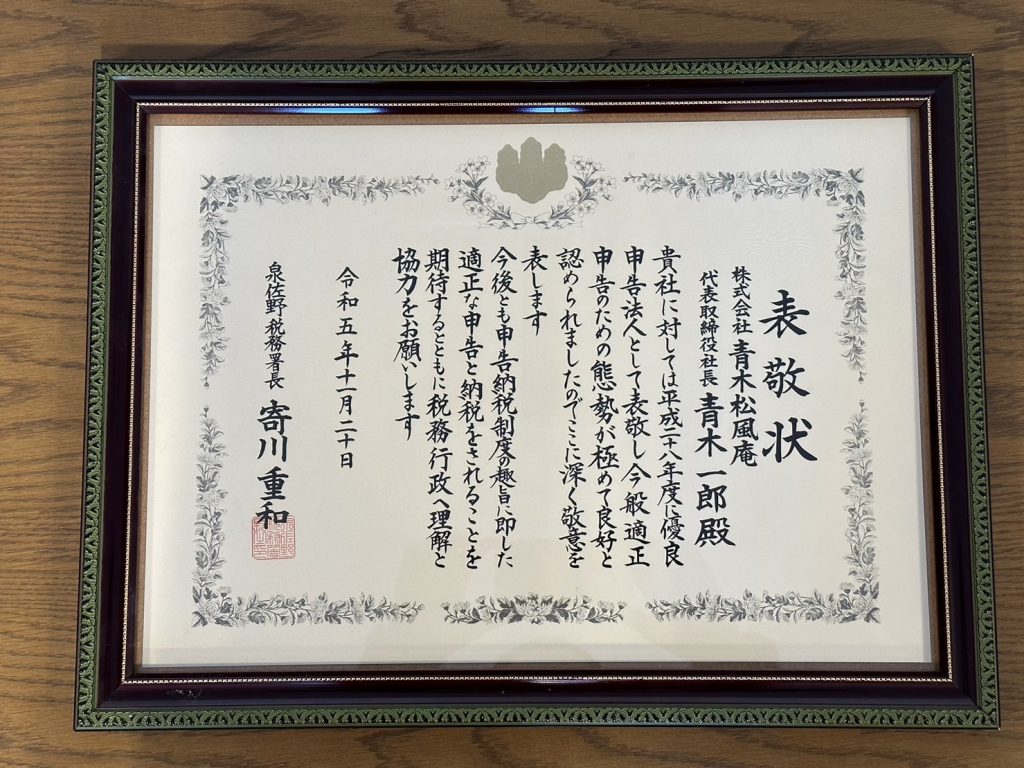 表敬状
株式会社 青木松風庵
代表取締役社長 青木一郎殿
貴社に対しては平成二十八年度に優良
申告法人として表敬し今般適正
申告のための態勢が極めて良好と
認められましたのでここに深く敬意を
表します
今後とも申告納税制度の趣旨に即した
適正な申告と納税をされることを
期待するとともに税務行政へ理解と
協力をお願いします
令和五年十一月二十日
泉佐野税務署長 寄川重和